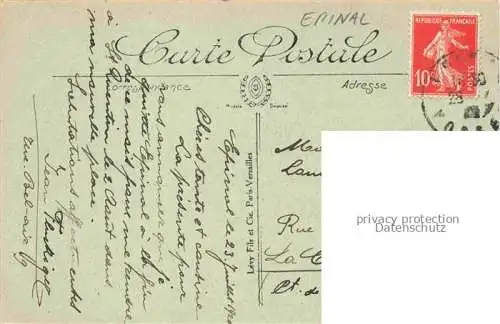 EPINAL
Carte Postale
Correspondance
Adresse
REPUBLIQUE FRANÇAISE
10c
POSTES
Modèle Déposé
Levy Fils et Cie, Paris-Versailles
Epinal le 23 Juillet
Chères tante et cousine
La présente pour
vous annoncer que je
quitte Epinal à la fin
de ce mois pour me rendre
à St Quentin le 2 Août dans
ma nouvelle place.
Salutations affectueuses
Jean
rue Bel-air
Rue
La
Ct. de
privacy protection
Datenschutz